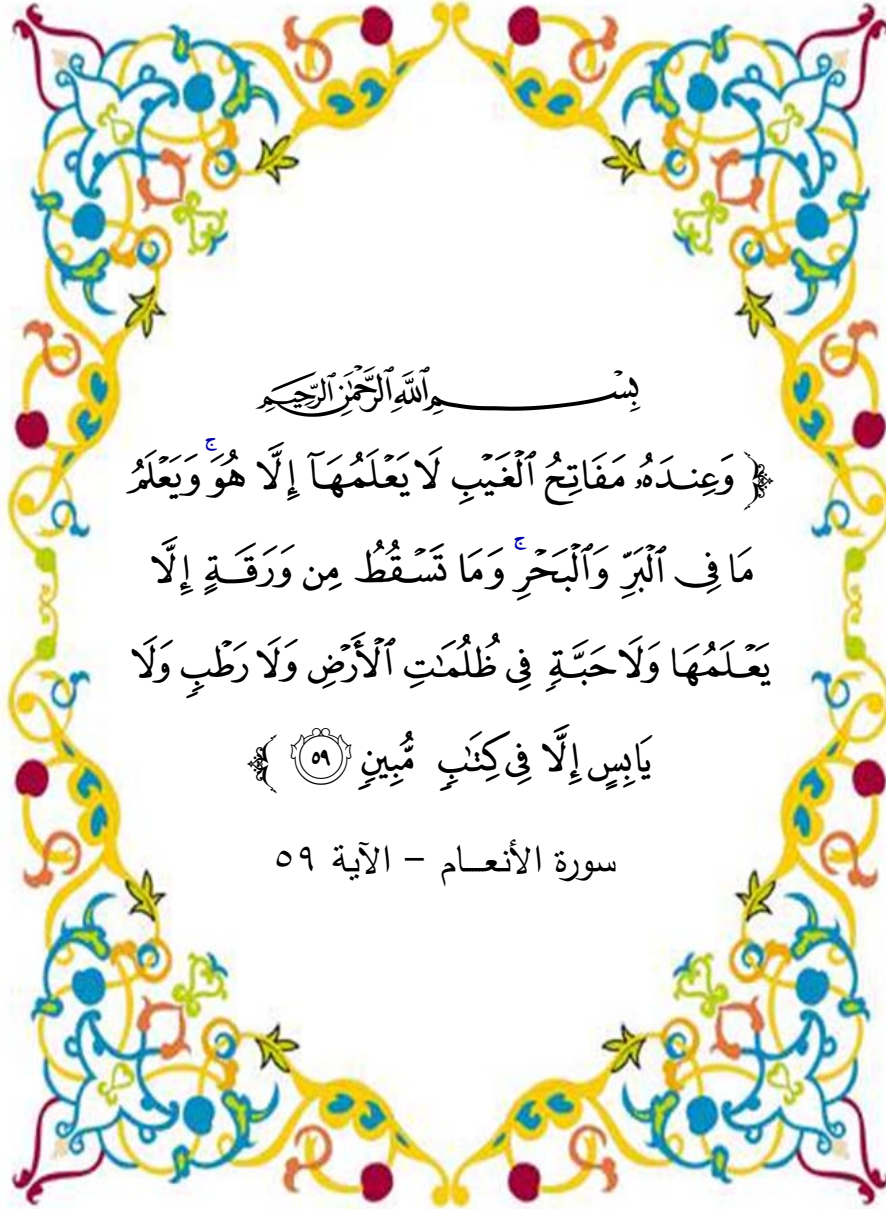 بِسْمِ ٱللَّهِ ٱلرَّحْمَٰنِ ٱلرَّحِيمِ
﴿ وَعِندَهُۥ مَفَاتِحُ ٱلْغَيْبِ لَا يَعْلَمُهَآ إِلَّا هُوَ ۚ وَيَعْلَمُ
مَا فِى ٱلْبَرِّ وَٱلْبَحْرِ ۚ وَمَا تَسْقُطُ مِن وَرَقَةٍ إِلَّا
يَعْلَمُهَا وَلَا حَبَّةٍ فِى ظُلُمَٰتِ ٱلْأَرْضِ وَلَا رَطْبٍ وَلَا
يَابِسٍ إِلَّا فِى كِتَٰبٍ مُّبِينٍ ٥٩ ﴾
سورة الأنعــام – الآية ٥٩